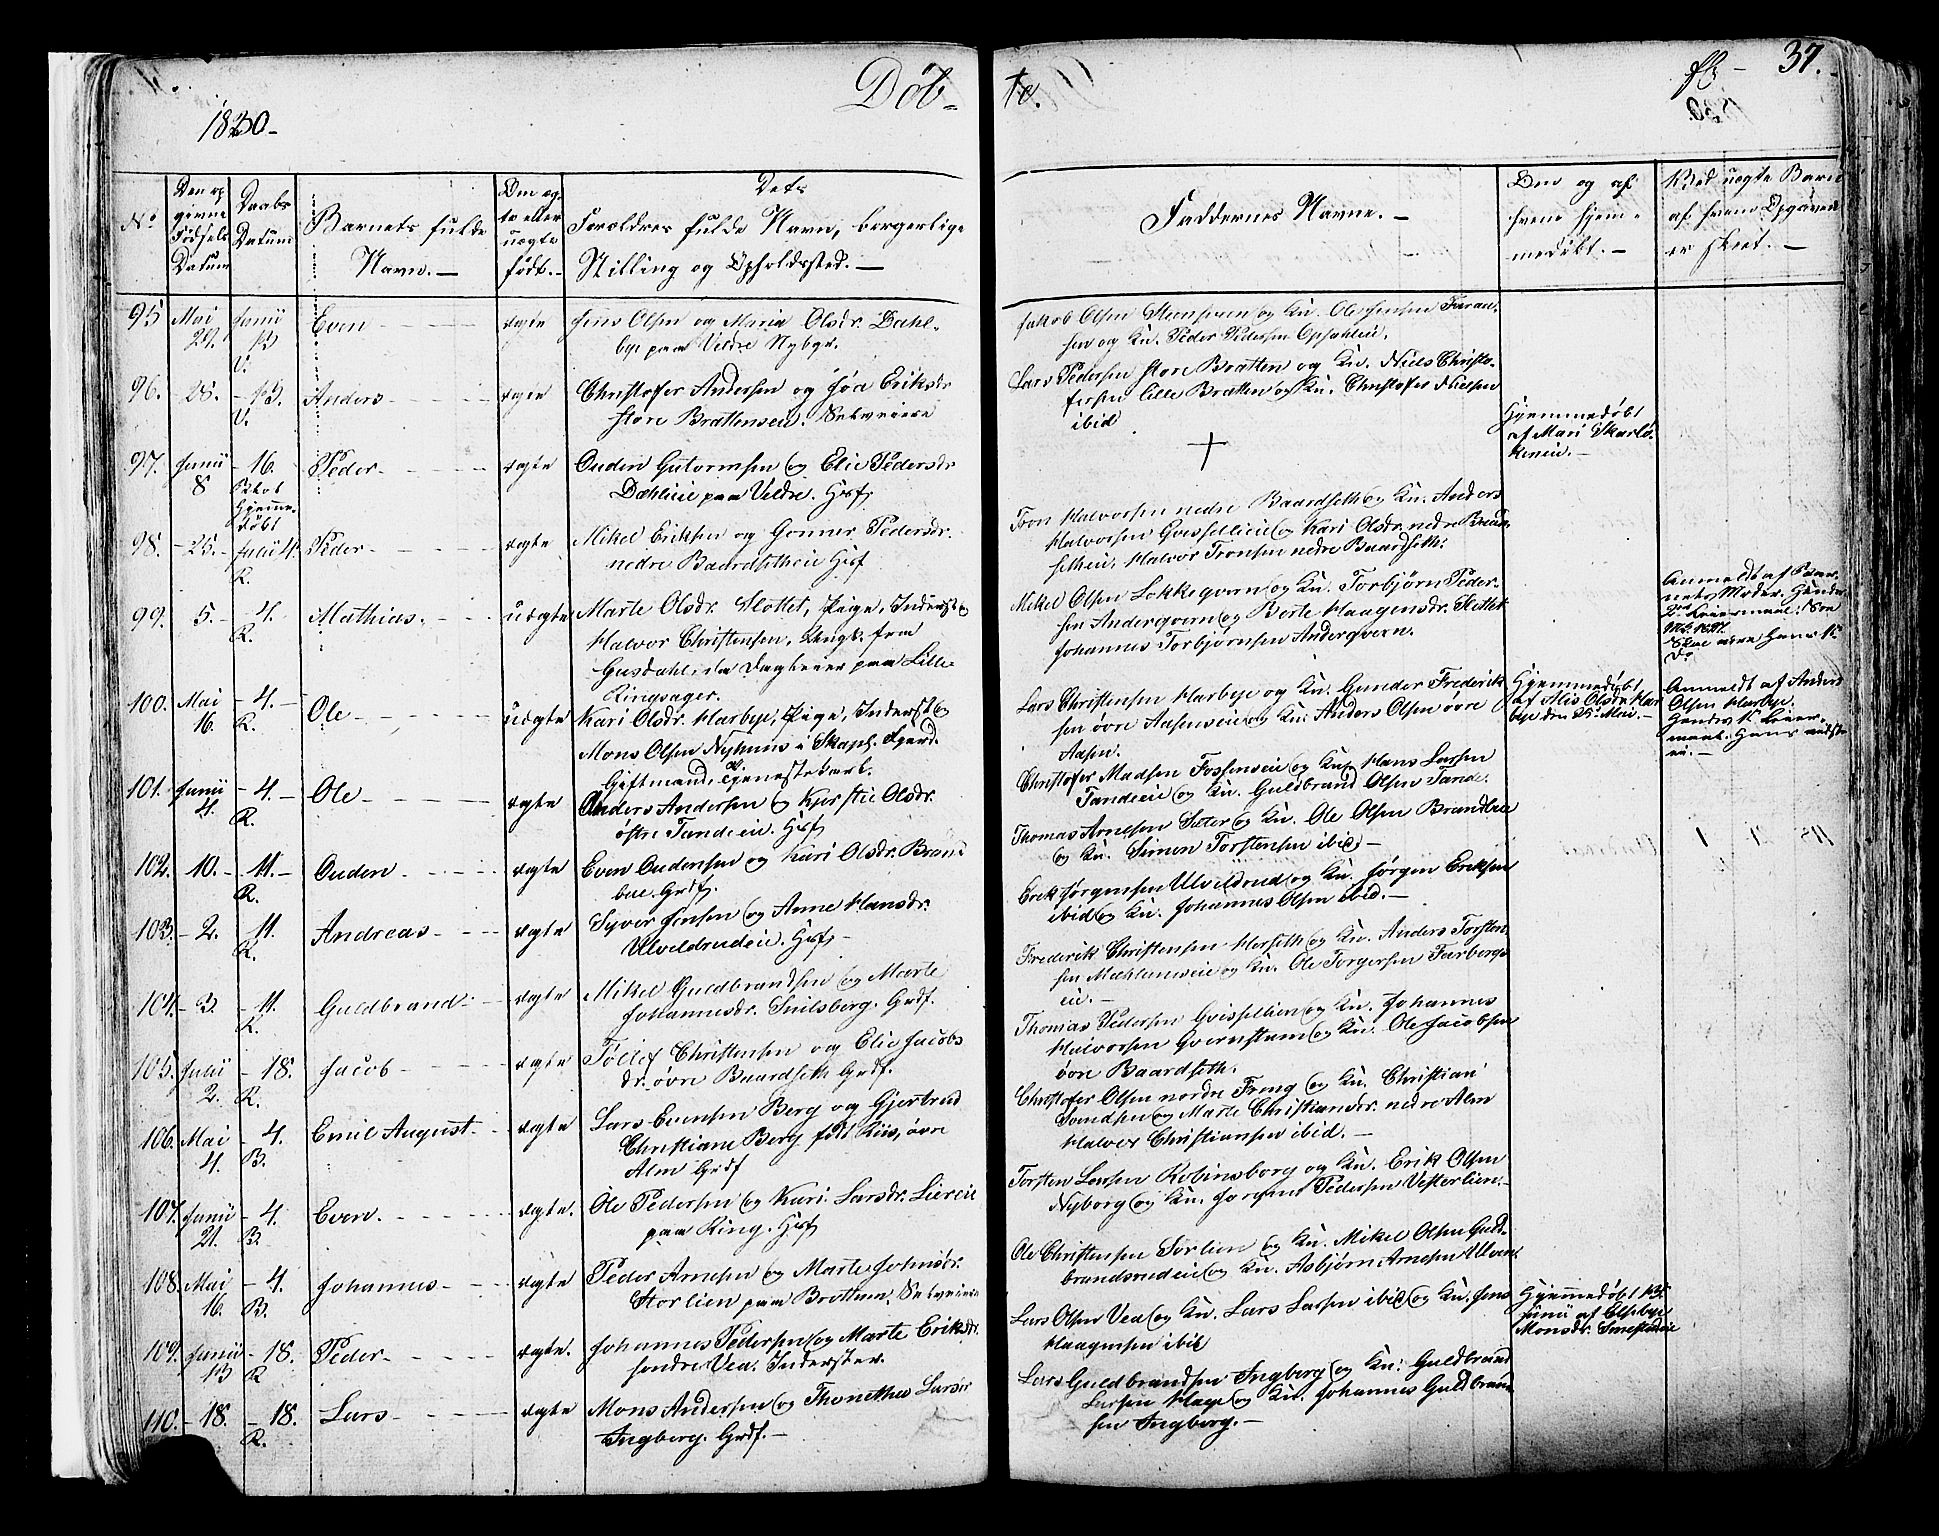 Døb- te.
37.
1830.
No
Den op
givne
Fødsels
Datum
Daabs
Datum
Barnets fulde
Navn. —
Om æg-
te eller
uægte
født. -
Dets
Forældres fulde Navn, borgerlige
Stilling og Opholdssted. —
Faddernes Navne. —
Om og af
hvem hjem-
medøbt. —
Ved uægte Barn
af hvem Opgaven
er skeet. —
95 Mai 29. Junii 13 V. Even ægte
Jens Olsen og Maria Olsdr. Dæhl-
bye paa Veldre Nybgr.
Jakob Olsen og Ku. Ole Jensen
og Ku. Peder Pedersen
96. 28. - 13. V. Anders ægte
Christofer Andersen og Eriksdr
store Brattenseie. Selveiere
Lars Pedersen store Bratten og Ku. Niels Christo-
fersen lille Bratten og Ku. Christofer Nielsen
ibid
97. Junii 8 - 16. Peder ægte
Hjemme-
døbt
Ouden Gutormsen og Elie Pedersdr
Dæhlieie paa Veldre. Husf
Hjemmedøbt
af Mari
98. - 25. Julii 4. R. Peder ægte
Mikel Eriksen og Gonner Pedersdr.
nedre Baardsetheie Husf
Tron Halvorsen nedre Baardseth og Ku. Anders
Halvorsen og Kari Olsdr. nedre Baard-
setheie, Halvor Tronsen nedre Baardseth.
99. 5. - 4. R. Mathias. uægte
Marte Olsdr. Slottet, Pige, Inderst og
Halvor Christensen, Ungk. fra
Gusdahl, da Dagleier paa Lille
Ringsager.
Mikel Olsen Løkkeqvern og Ku. Torbjørn Peder-
sen Anderqvern og Berte Haagensdr.
Johannes Torbjørnsen Anderqvern.
Anmeldt af Bar-
nets Moder. Hendes
2det Leiermaal.
100. Mai 16. - 4. R. Ole uægte
Kari Olsdr. Harbye, Pige, Inderst og
Mons Olsen Nyhuus i
Giftmand, Tjenestekarl.
Lars Christensen Harbye og Ku. Gunder Frederik-
sen øvre Aasenseie og Ku. Anders Olsen øvre
Aasen.
Hjemmedøbt
af Alis Olsdr Har-
bye den Mai. —
Anmeldt af Anders
Olsen Harbye.
101. Junii 4. - 4. R. Ole ægte
Anders Andersen og Kjerstie Olsdr.
østre Tandeeie. Husf
Christofer Madsen Fossenseie og Ku. Hans Larsen
Tandeeie og Ku. Guldbrand Olsen Tande.
102. 10. - 11. R. Ouden ægte
Even Oudensen og Kari Olsdr. Brand-
bue. Grdf.
Thomas Arnesen Sæter og Ku. Ole Olsen Brandbue
og Ku. Simen Torstensen ibid. —
103. - 2. 11. R. Andreas ægte
Syver Jensen og Anne Hansdr.
Ulvildrudeie. Husf —
Erik Jørgensen Ulvildrud og Ku. Jørgen Eriksen
ibid og Ku. Johannes Olsen ibid. —
104. - 3. - 11. R. Guldbrand ægte
Mikel Guldbrandsen og Marte
Johannesdr. Snilsberg. Grdf.
Frederik Christensen Horseth og Ku. Anders Torsten-
sen Mæhlumseie og Ku. Ole Torgersen Farbergs-
eie. —
105. Junii 2. - 18. R. Jacob ægte
Tollef Christensen og Elie Jacobs
dr. øvre Baardseth Grdf.
Thomas Pedersen og Ku. Johannes
Halvorsen og Ku. Ole Jacobsen
øvre Baardseth.
106. Mai 4. - 4. B. Emil August ægte
Lars Evensen Berg og Gjertrud
Christiane Berg født Riis, øvre
Alm Grdf
Christofer Olsen nordre Freng og Ku. Christian
og Marte Christiansdr. nedre Alm
Halvor Christiansen ibid. —
107. Junii 21. - 4. B. Even. ægte.
Ole Pedersen og Kari Larsdr. Liereie
paa Ring. Husf
Torsten Larsen Robinsborg og Ku. Erik Olsen
Nyborg og Ku. Jørgen Pedersen Vesterlien. —
108. Mai 16. - 4. B. Johannes ægte
Peder Arnesen og Marte Johnsdr.
Storlien paa Brottum. Selveiere
Ole Christensen Sørlien og Ku. Mikel Olsen Guld-
brandsrudeie og Ku. Asbjørn Arnesen
109. Junii 13 - 18. R Peder ægte.
Johannes Pedersen og Marte Eriksdr.
søndre Ved. Inderster.
Lars Olsen Ved og Ku. Lars Larsen ibid og Ku. Jens
Haagensen ibid
Hjemmedøbt 13
Junii af
Monsdr.
110. - 18. - 18. R. Lars ægte
Mons Andersen og Thonethea Larsdr
Ingberg. Grdf. —
Lars Guldbrandsen Ingberg og Ku. Guldbrand
Larsen Hage og Ku. Johannes Guldbrand-
sen Ingberg. —